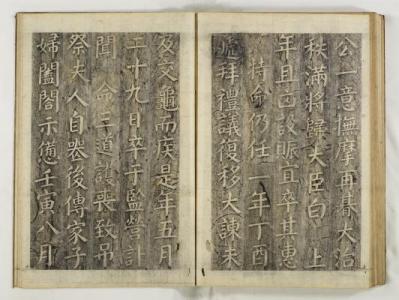 公一意撫摩再朞大治
秩滿將歸大臣白 上
年且曰設賑宜卒其惠
特命仍任一年丁酉
拜禮議復移大諫未
及交龜而疾是年五月
二十九日卒于監營訃
聞 命三道護喪致吊
祭夫人自
後傳家子
婦闔閤示
壬寅八月